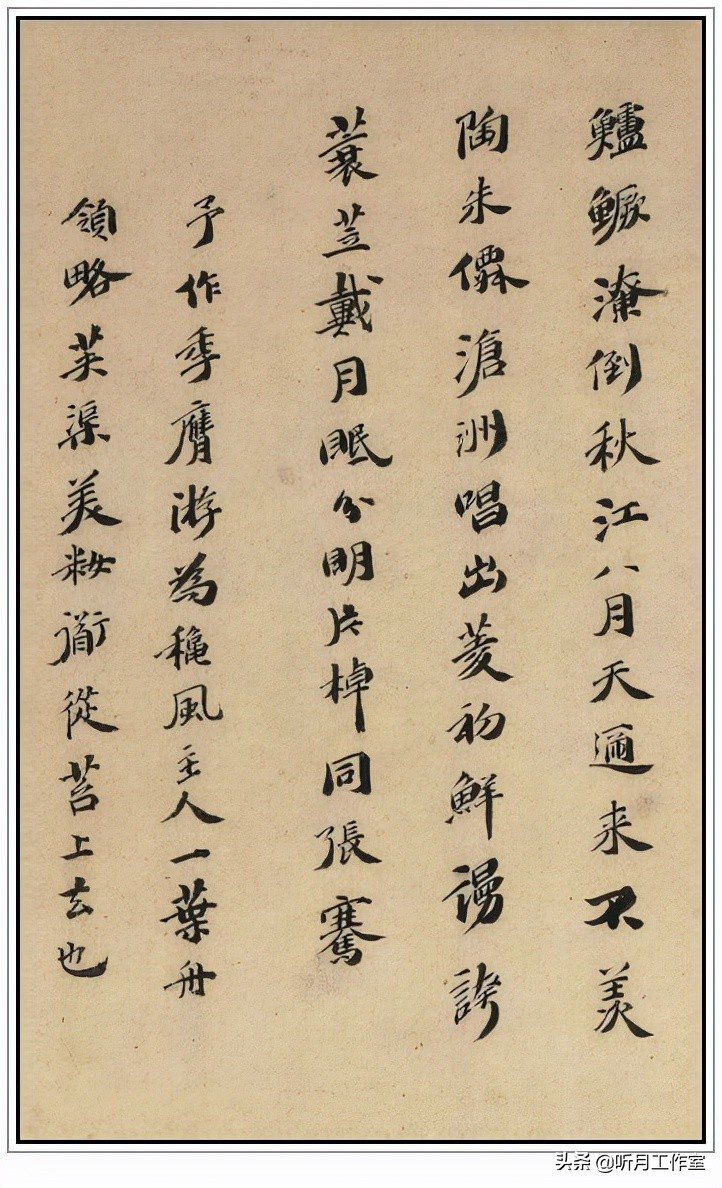 鱸鱖潦倒秋江八月天邇来不羡
陶朱僊滄洲唱出菱初鮮謾誇
蓑苙戴月眠分明片棹同張騫
予作季膺游為穐風主人一葉舟
領略芙渠美籹從苕上去也
头条 @听月工作室